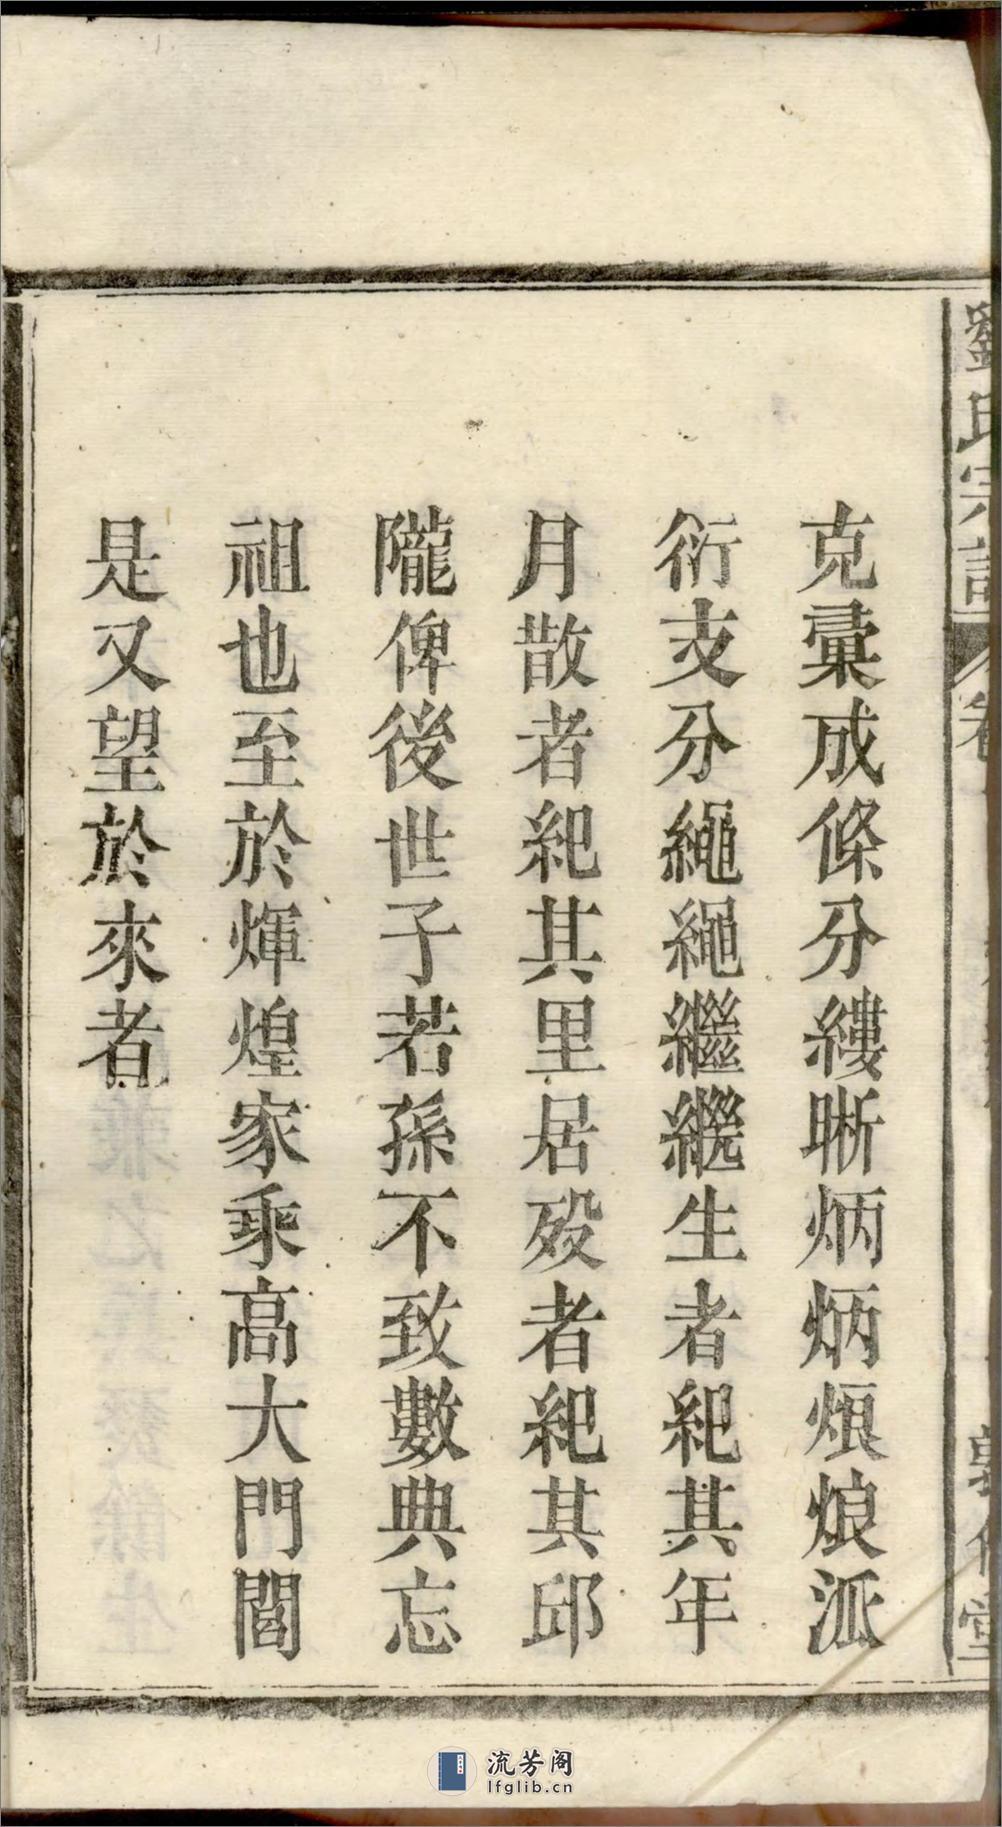 克彙成條分縷晰炳炳烺烺派
衍支分繩繩繼繼生者紀其年
月散者紀其里居歿者紀其邱
隴俾後世子若孫不致數典忘
祖也至於煇煌家乘高大門閭
是又望於來者
劉氏宗譜
卷
堂
流芳阁
lfglib.cn